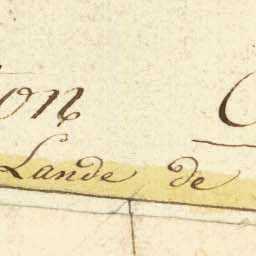 ton
Lande de